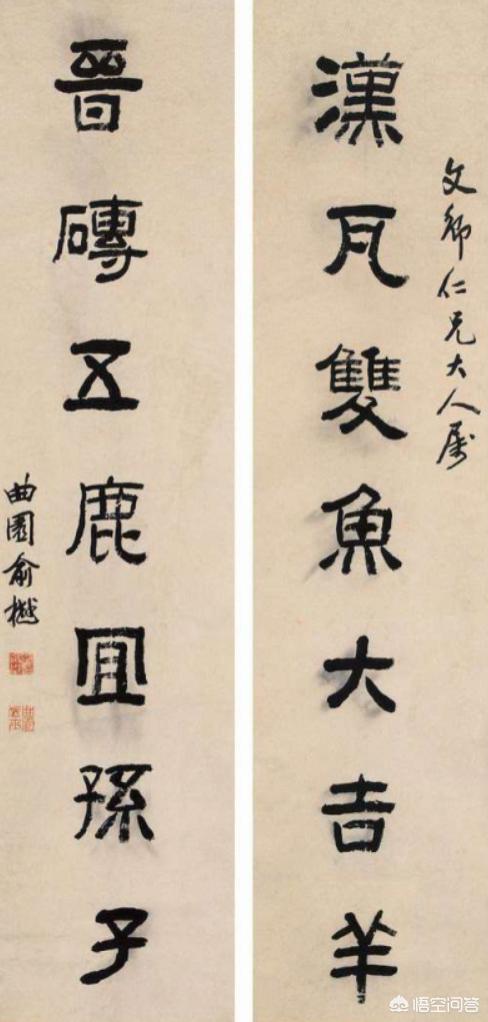 文卿仁兄大人属
漢瓦雙魚大吉羊
晉磚五鹿宜孫子
曲園俞樾
悟空问答